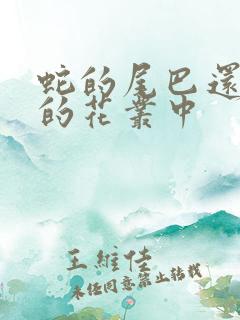 蛇的尾巴還
的花叢中
王維佳
未經同意禁止轉載